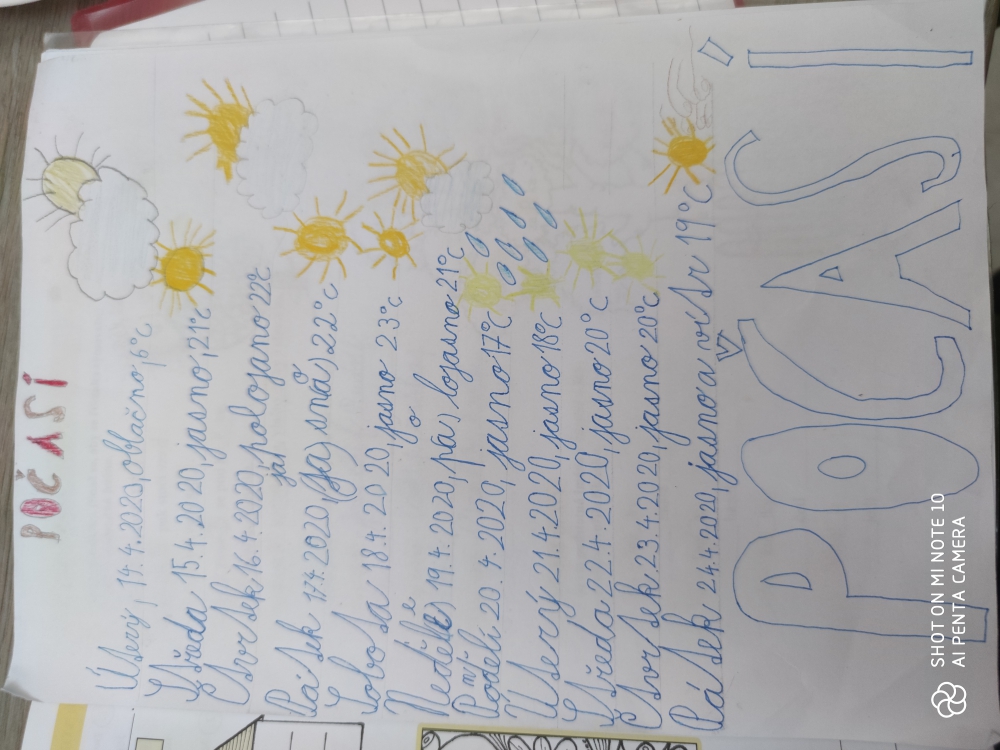 POČASÍ
Úterý, 14.4.2020, oblačno, 6°C
Středa 15.4.2020, jasno, 21°C
Čtvrtek 16.4.2020, polojasno 22°C
Pátek 17.4.2020 (ja) jasno, 22°C
Sobota 18.4.2020, jasno 23°C
Neděle 19.4.2020, polojasno 21°C
Pondělí 20.4.2020, jasno 17°C
Úterý 21.4.2020, jasno 18°C
Středa 22.4.2020, jasno 20°C
Čtvrtek 23.4.2020, jasno 20°C
Pátek 24.4.2020, jasno a vítr 19°C
POČASÍ
SHOT ON MI NOTE 10
AI PENTA CAMERA